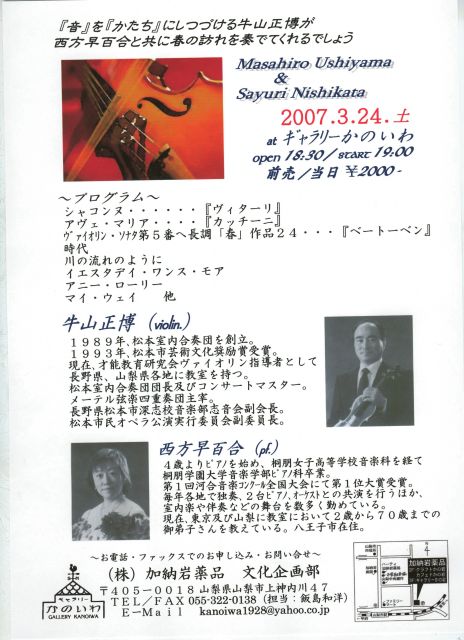 『音』を『かたち』にしつづける牛山正博が
西方早百合と共に春の訪れを奏でてくれるでしょう
Masahiro Ushiyama
&
Sayuri Nishikata
2007.3.24.土
at ギャラリーかのいわ
open 18:30/START 19:00
前売/当日 ¥2000-
～プログラム～
シャコンヌ・・・・・・『ヴィターリ』
アヴェ・マリア・・・・『カッチーニ』
ヴァイオリン・ソナタ第5番ヘ長調「春」作品24・・・『ベートーベン』
時代
川の流れのように
イエスタデイ・ワンス・モア
アニー・ローリー
マイ・ウェイ 他
牛山正博 (violin.)
1989年、松本室内合奏団を創立。
1993年、松本市芸術文化奨励賞受賞。
現在、才能教育研究会ヴァイオリン指導者として
長野県、山梨県各地に教室を持つ。
松本室内合奏団団長及びコンサートマスター。
メーテル弦楽四重奏団主宰。
長野県松本市深志校音楽部志音会副会長。
松本市民オペラ公演実行委員会副委員長。
西方早百合 (pf.)
4歳よりピアノを始め、桐朋女子高等学校音楽科を経て
桐朋学園大学音楽学部ピアノ科卒業。
第1回河合音楽コンクール全国大会にて第1位大賞受賞。
毎年各地で独奏、2台ピアノ、オーケストとの共演を行うほか、
室内楽や伴奏などの舞台を多数く勤めている。
現在、東京及び山梨に教室において2歳から70歳までの
御弟子さんを教えている。八王子市在住。
～お電話・ファックスでのお申し込み・お問い合せ～
(株)加納岩薬品 文化企画部
〒405-0018 山梨県山梨市上神内川47
TEL/FAX 055-322-0138 (担当:飯島和洋)
E-Mail kanoiwa1928@yahoo.co.jp
ギャラリー
かのいわ
GALLERY KANOIWA
加納岩薬品